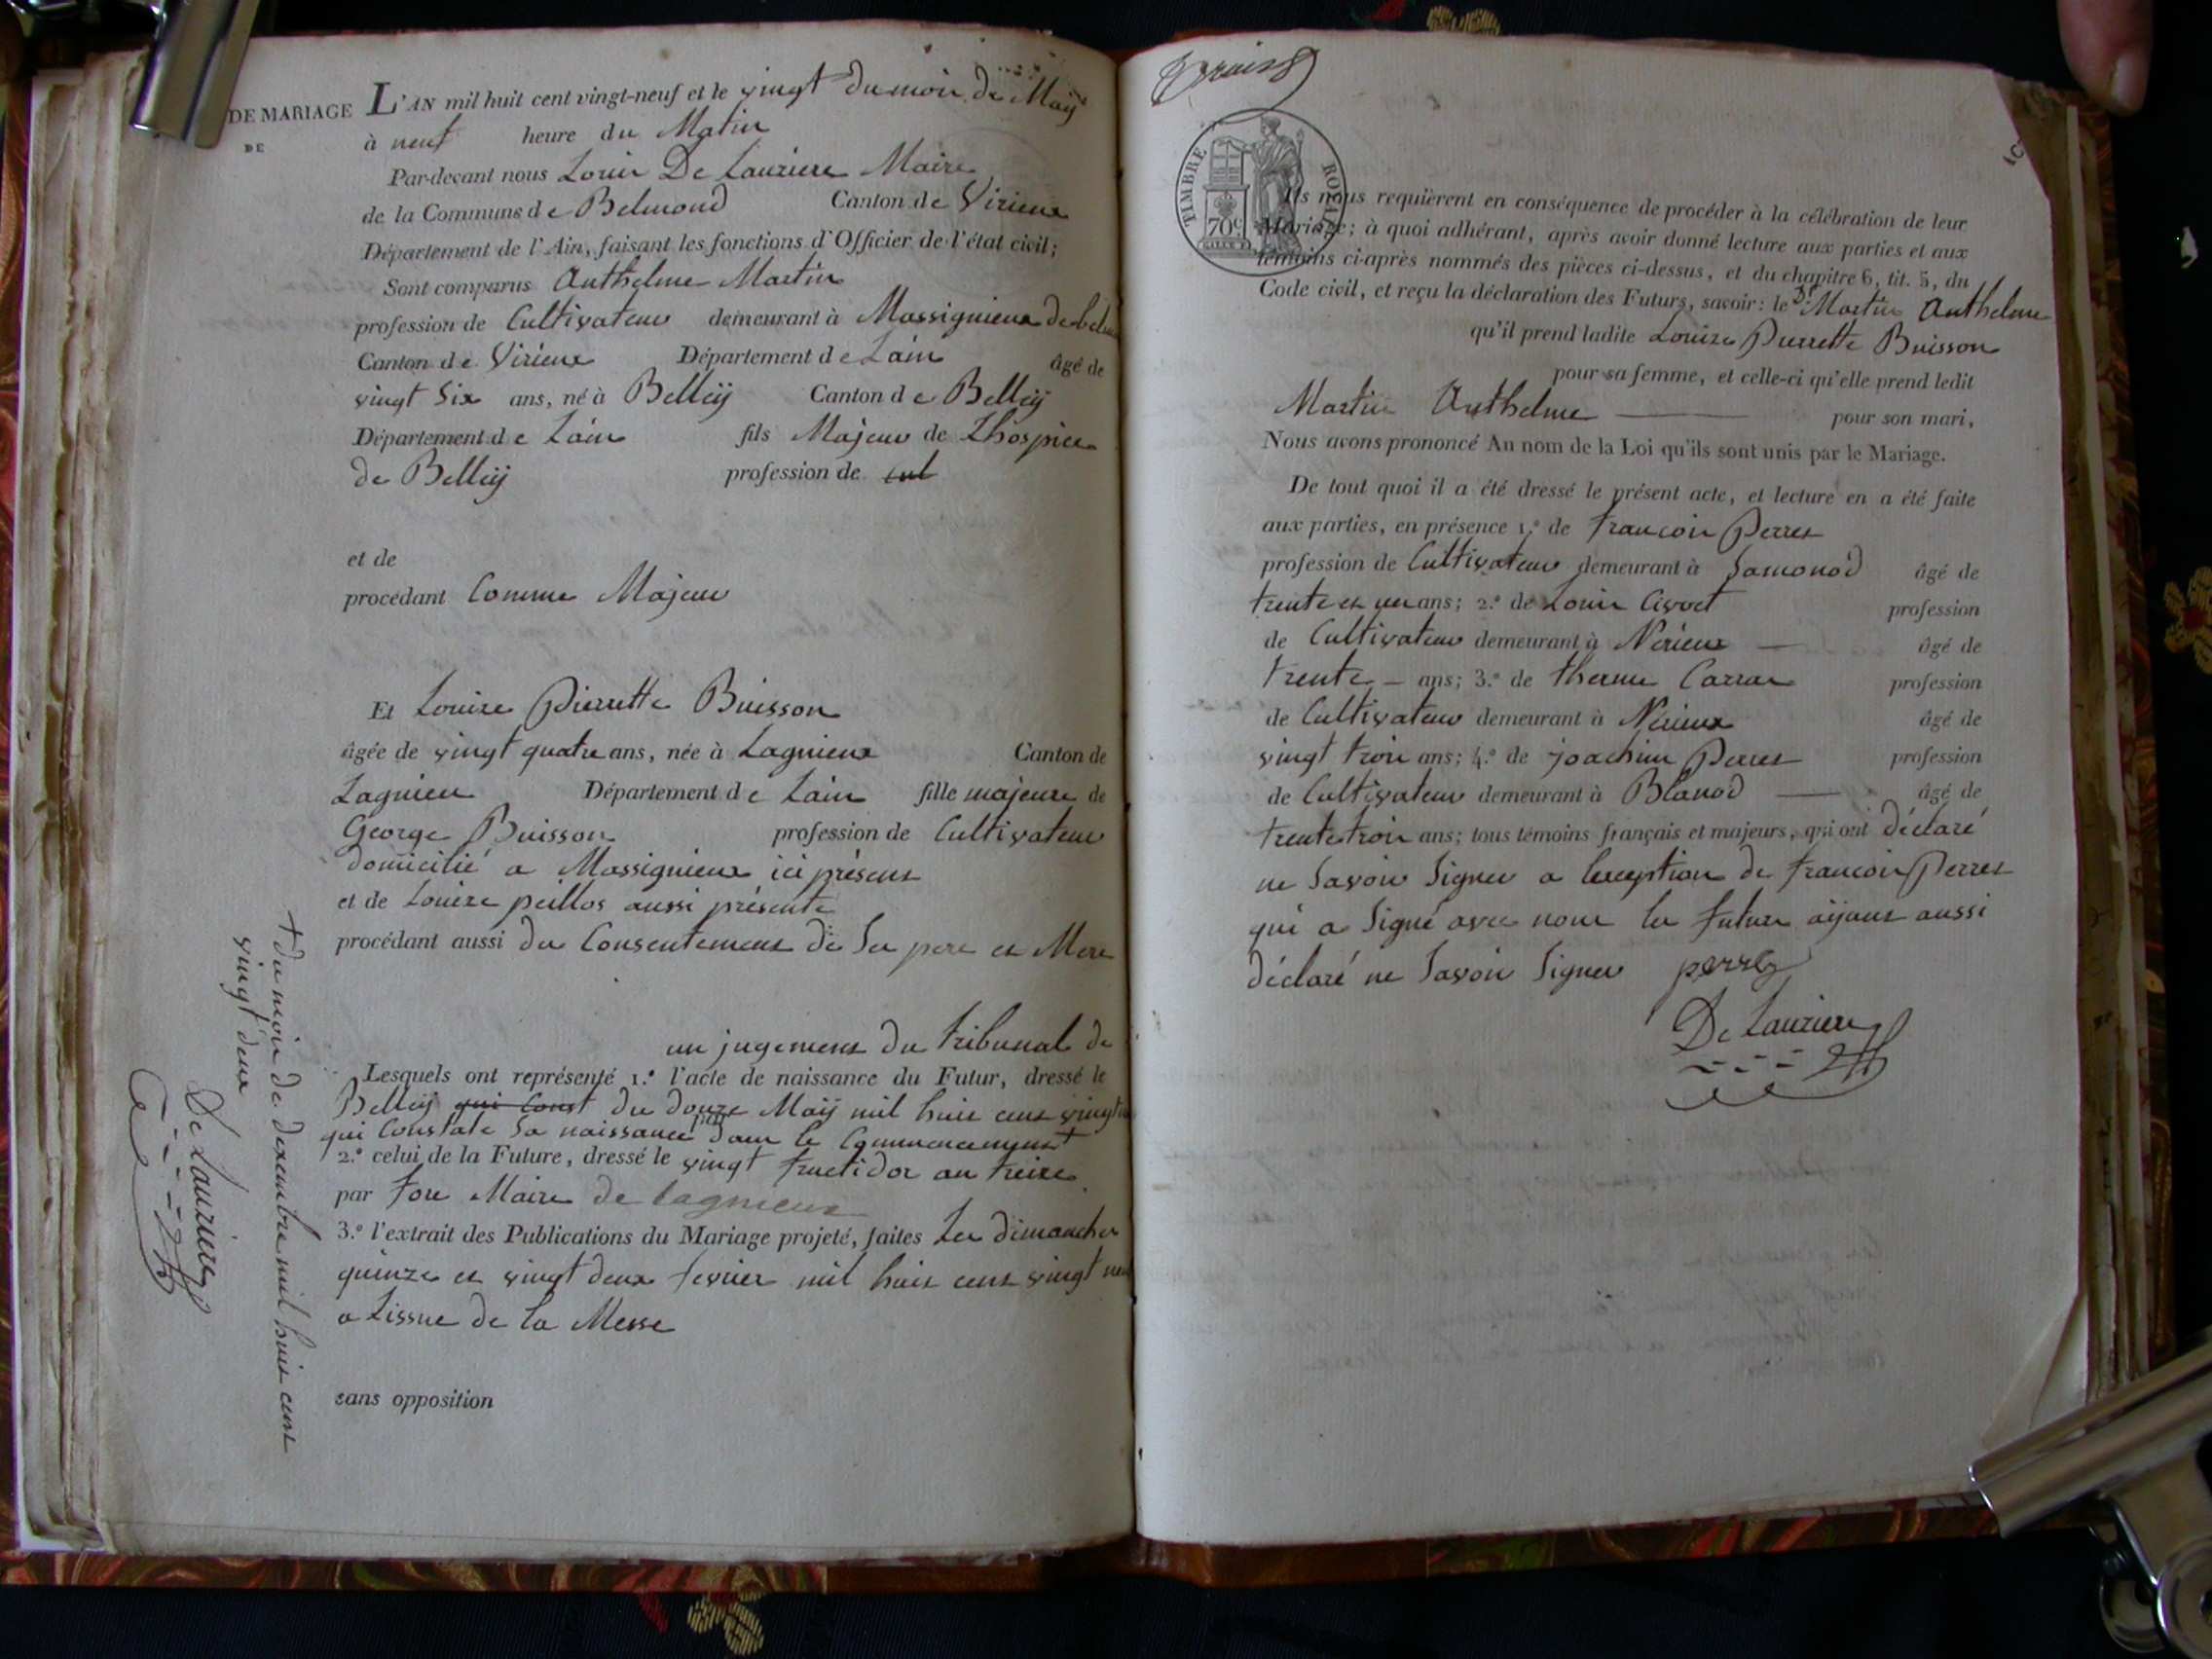 DE MARIAGE
DE
L'AN mil huit cent vingt-neuf et le vingt du mois de Maÿ
à neuf heure du Matin
Par-devant nous Louis De Lauziere Maire
de la Commune de Belmond Canton de Virieux
Département de l'Ain, faisant les fonctions d'Officier de l'état civil;
Sont comparus Anthelme Martin
profession de Cultivateur demeurant à Massignieux de
Canton de Virieux Département de Lain âgé de
vingt Six ans, né à Belleÿ Canton de Belleÿ
Département de Lain fils Majeur de Lhospice
de Belleÿ profession de cul
et de
procédant Comme Majeur
Et Louise Pierrette Buisson
âgée de vingt quatre ans, née à Lagnieux Canton de
Lagnieu Département de Lain fille majeure de
George Buisson profession de Cultivateur
domicilié a Massignieux ici présent
et de Louise peillos aussi présente
procédant aussi du Consentement de Ses pere et Mere
un jugement du tribunal de
Lesquels ont représenté 1.º l'acte de naissance du Futur, dressé le
Belleÿ qui const du douze Maÿ mil huit cent vingt
qui Constate Sa naissance dans le Commencement +
2.º celui de la Future, dressé le vingt fructidor an treize
par fou Maire de lagnieux
3.º l'extrait des Publications du Mariage projeté, faites Les dimanches
quinze et vingt deux fevrier mil huit cent vingt neuf
a Lissue de la Messe
sans opposition
+ du mois de décembre mil huit cent
vingt deux
De Lauziere
TIMBRE ROYAL
70c
Ils nous requièrent en conséquence de procéder à la célébration de leur
Mariage; à quoi adhérant, après avoir donné lecture aux parties et aux
témoins ci-après nommés des pièces ci-dessus, et du chapitre 6, tit. 5, du
Code civil, et reçu la déclaration des Futurs, savoir: le Sr Martin Anthelme
qu'il prend ladite Louise Pierrette Buisson
pour sa femme, et celle-ci qu'elle prend ledit
Martin Anthelme pour son mari,
Nous avons prononcé Au nom de la Loi qu'ils sont unis par le Mariage.
De tout quoi il a été dressé le présent acte, et lecture en a été faite
aux parties, en présence 1.º de francois Perret
profession de Cultivateur demeurant à Samonod âgé de
trente et un ans; 2.º de Louis Civoct profession
de Cultivateur demeurant à Nerieux âgé de
trente ans; 3.º de therme Carrar profession
de Cultivateur demeurant à Nerieux âgé de
vingt trois ans; 4.º de joachim Perret profession
de Cultivateur demeurant à Blanod âgé de
trente trois ans; tous témoins français et majeurs, qui ont déclaré
ne Savoir Signer a lexception de francois Perret
qui a Signé avec nous les futurs aÿant aussi
déclaré ne Savoir Signer perret
De Lauziere